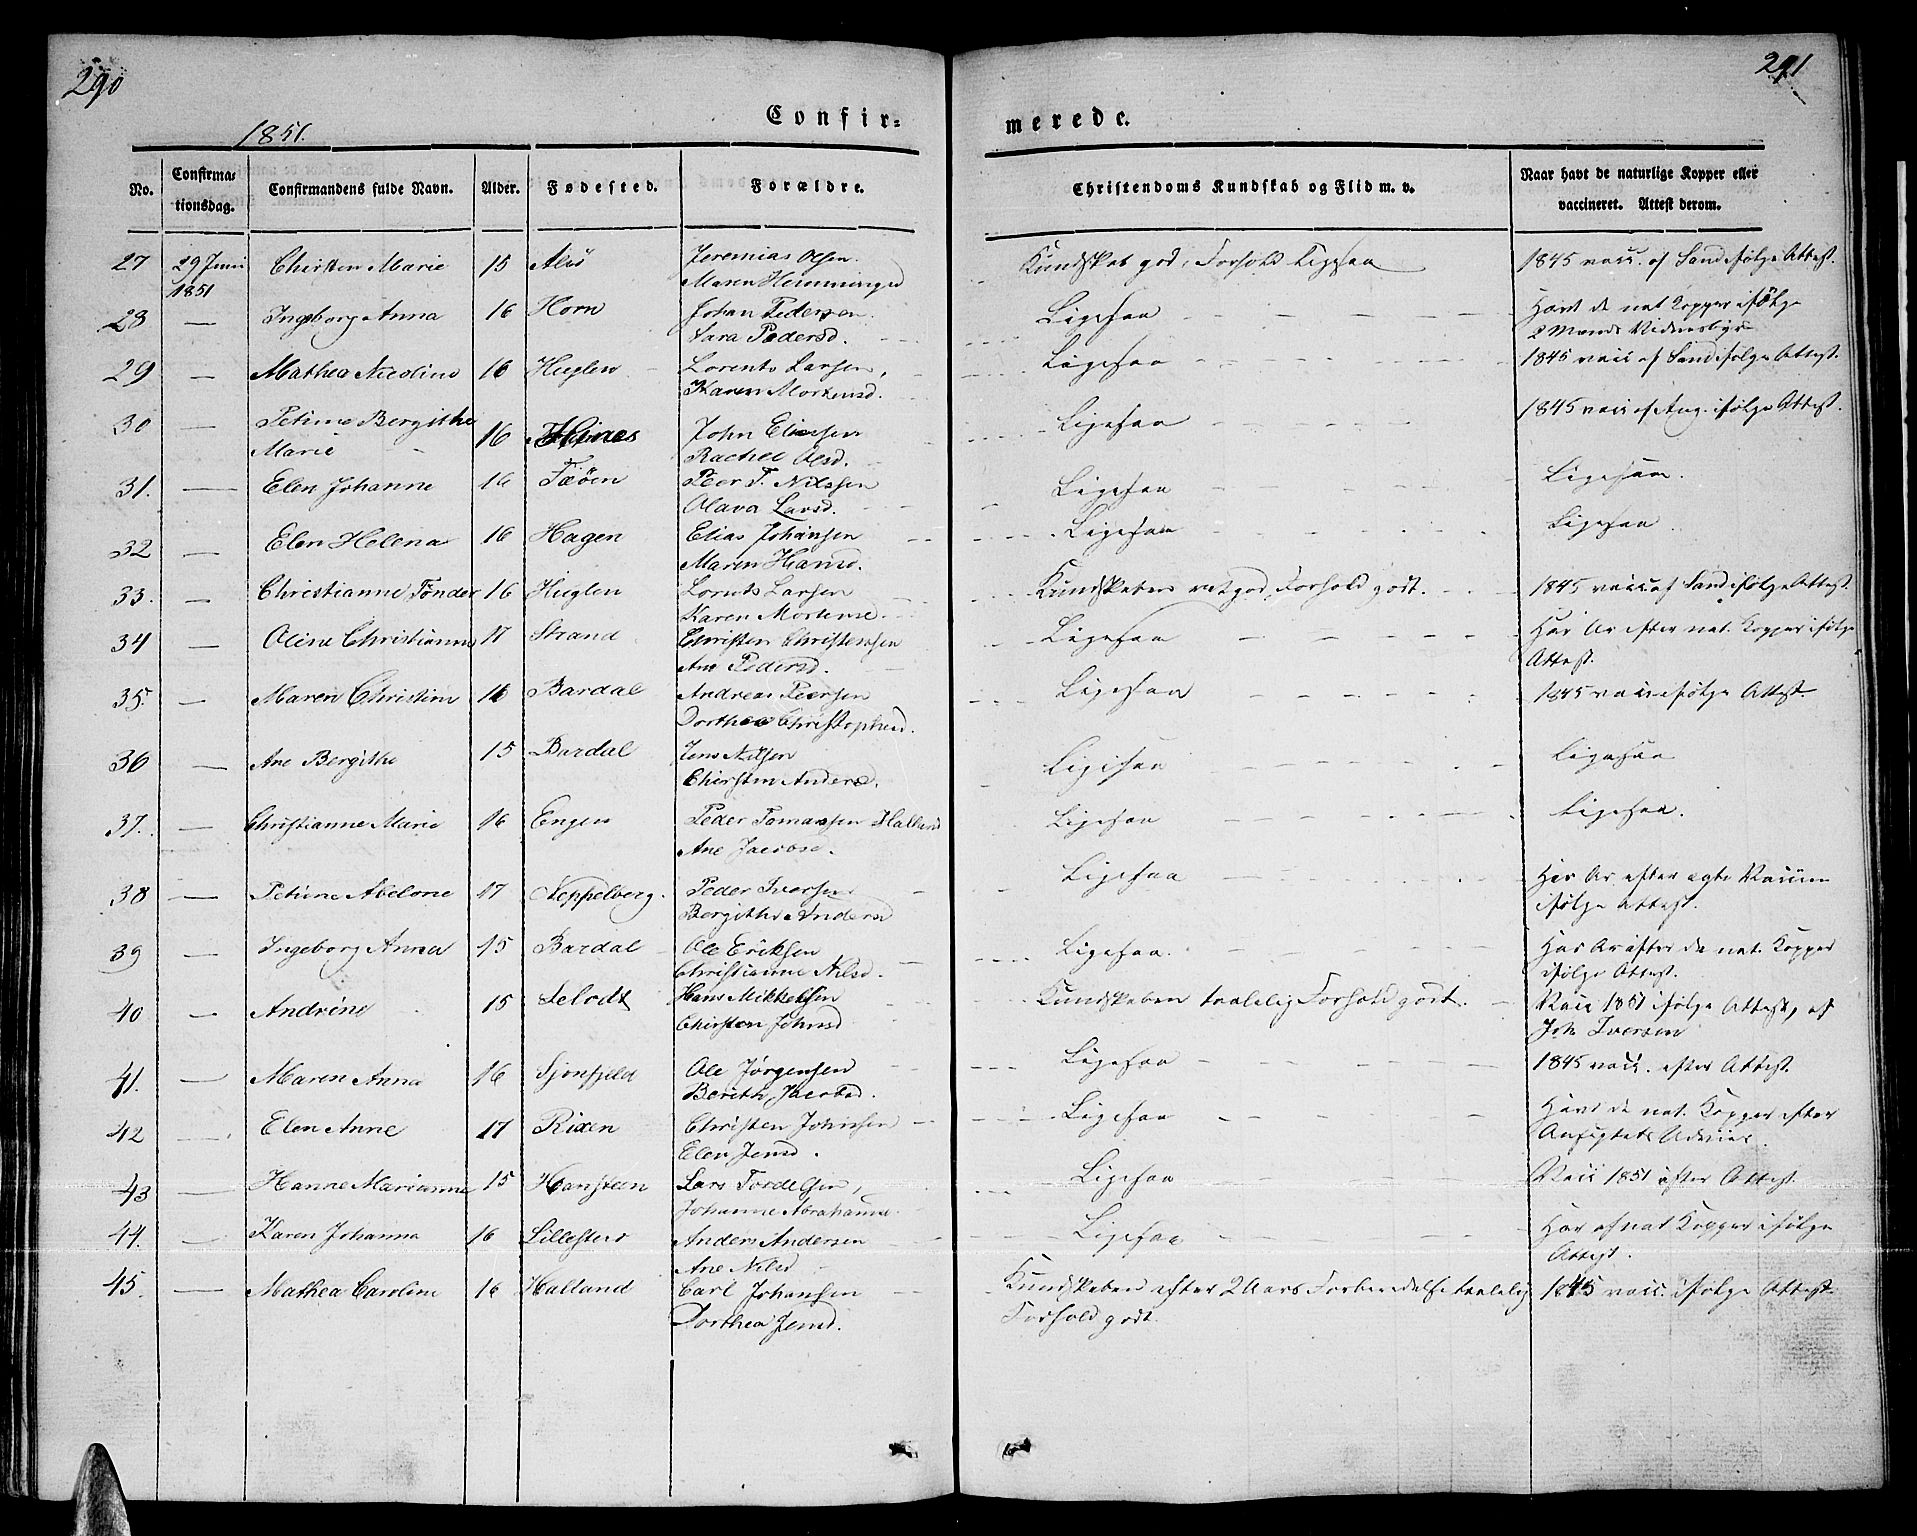 290
291
1851.
Confir=
merede.
No.
Confirma=
tionsdag.
Confirmandens fulde Navn.
Alder.
Fødested.
Forældre.
Christendoms Kundskab og Flid m. v.
Naar havt de naturlige Kopper eller
vaccineret. Attest derom.
27 29 Juni Chirsten Marie 15 Alsö Jeremias Olsen. Kundskab god, Forhold Ligesaa 1845 vacc. af Sand ifølge Attest.
1851 Maren Hemmingsd
28 — Ingeborg Anna 16 Horn Johan Pedersen. Ligesaa Havt de nat Kopper ifölge
Sara Pedersd. 2 Mænds Vidensbyr
29 — Mathea Nicoline 16 Huglen Lorents Larsen, Ligesaa 1845 vacc af Sand ifølge Attest.
Karen Mortensd.
30 — Petrine Bergithe 16 John Eliesen Ligesaa 1845 vacc af Aug. ifølge Attest.
Marie Rachel Olsd.
31. — Elen Johanne 16 Fæöen Peer T. Nilssen Ligesaa Ligesaa.
Olava Larsd.
32 — Elen Helena 16 Hagen Elias Johansen Ligesaa Ligesaa.
Maren Hansd.
33. — Christianne Tönder 16 Huglen Lorents Larsen Kundskaben ret god, Forhold godt. 1845 vacc. af Sand ifølge Attest.
Karen Mortense.
34 — Oline Christianne 17 Strand Christen Christensen Ligesaa Har Ar efter nat. Kopper ifølge
Ane Pedersd. Attest.
35. — Maren Christine 16 Bardal Andreas Peersen Ligesaa 1845 vacc ifølge Attest.
Dorthea Christophersd.
36 — Ane Bergithe 15 Bardal Jens Nilsen Ligesaa Ligesaa
Chirsten Andersd.
37. — Christianne Marie 16 Engen Peder Tomassen Halland Ligesaa Ligesaa.
Ane Jacobsd.
38 — Petrine Abelone 17 Neppelberg. Peder Iversen Ligesaa Har Ar efter ægte Vaccine
Bergithe Andersd ifølge Attest.
39 — Ingeborg Anna 15 Bardal Ole Eriksen Ligesaa. Har Ar efter de nat. Kopper
Christianne Nilsd. ifølge Attest.
40 — Andrine 15 Selodt Hans Mikkelsen Kundskaben taalelig Forhold godt. Vacc 1851 ifølge Attest, af
Chirsten Johnsd Joh Iversen
41. — Maren Anna 16 Sjonfjeld Ole Jørgensen Ligesaa 1845 vacc. efter Attest.
Berith Jacobsd.
42 — Elen Anne 17 Rixen Christen Johnsen Ligesaa Havt de nat. Kopper efter
Elen Jensd.
43 — Hanne Marianne 15 Hansteen Lars Tordelsen, Ligesaa Vacc 1851 efter Attest.
Johanne Abrahamsd.
44. — Karen Johanna 16 Anders Andersen Ligesaa Har af nat Kopper ifølge
Ane Nilsd Attest.
45. — Mathea Caroline 16 Halland Carl Johansen Kundskaben efter 2 Aars Forberedelse taalelig 1845 vacc. ifølge Attest
Dorthea Jensd. Forhold godt.